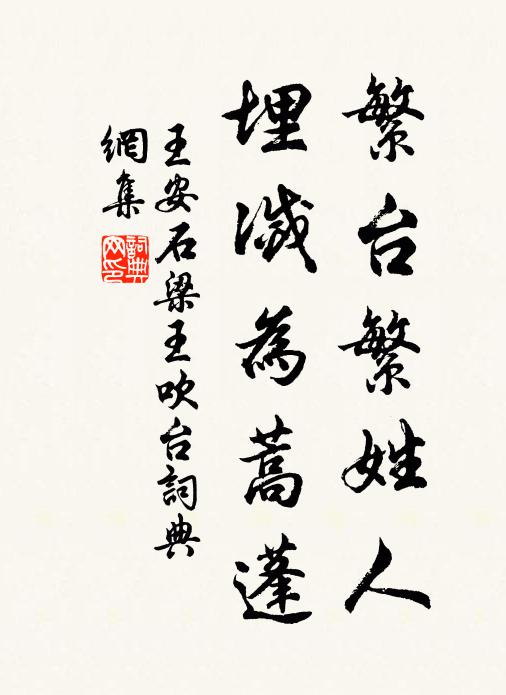 繁台繁姓人
埋滅為蒿蓬
王安石梁王吹台詞典
網集
詞典网印